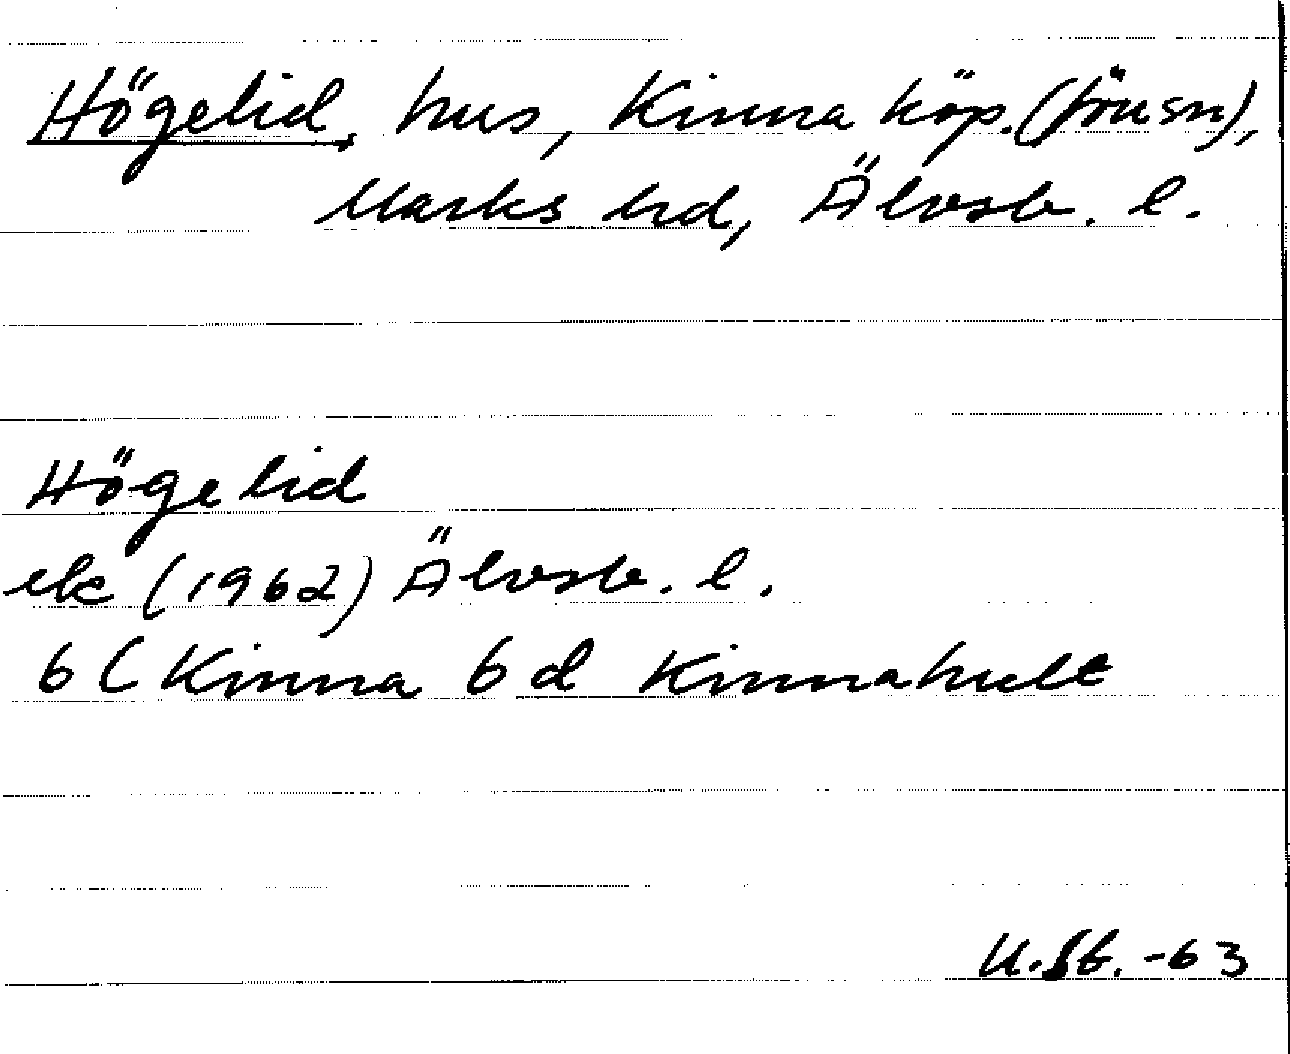 Högelid, hus, Kinna köp. (förr sn),
Marks hd, Älvsb. l.
Högelid
ek (1962) Älvsb. l.
6 C Kinna 6 d Kinnahult
-63